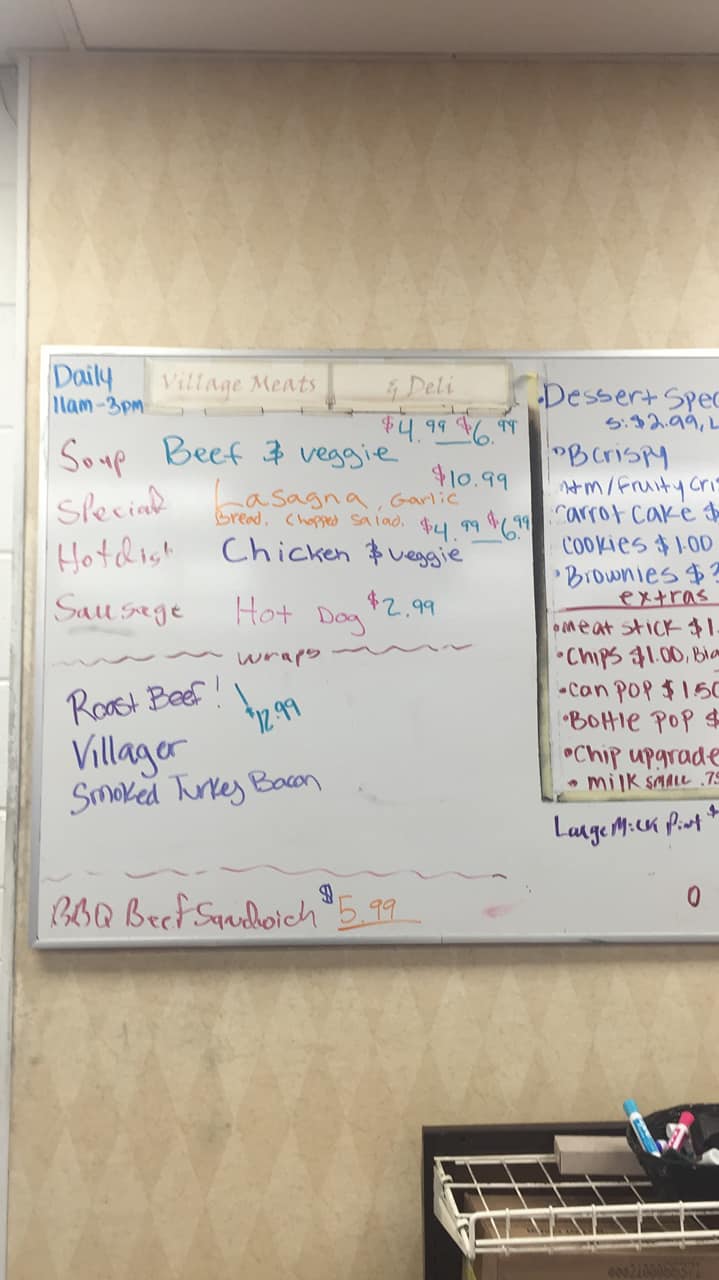 Daily
11am-3pm
Village Meats & Deli
Soup Beef & veggie $4.99 $6.99
Special Lasagna, Garlic $10.99
Bread, Chopped Salad.
Hotdish Chicken & veggie $4.99 $6.99
Sausage Hot Dog $2.99
wraps
Roast Beef! $12.99
Villager
Smoked Turkey Bacon
BBQ Beef Sandwich $5.99
Dessert Spec
S: $2.99, L
Bcrispy
/fruity cri
carrot cake $
cookies $1.00
Brownies $
extras
meat stick $1.
Chips $1.00, Big
can pop $1.50
Bottle pop $
Chip upgrade
milk SMALL .75
Large Milk Pint $
0